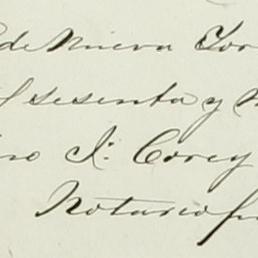 de Nueva Yor
sesenta y n
no J. Corey
Notario